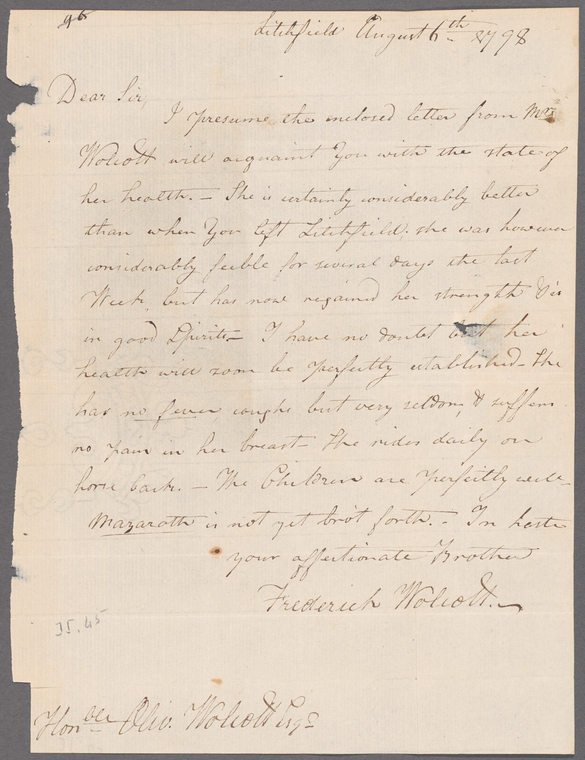 Litchfield August 6th 1798
Dear Sir,
I presume the inclosed letter from Mrs
Wolcott will acquaint You with the state of
her health. – She is certainly considerably better
than when You left Litchfield. she was however
considerably feeble for several days the last
Week, but has now regained her strength & is
in good Spirits – I have no doubt but her
health will soon be perfectly established – She
has no fever coughs but very seldom, & suffers
no pain in her breast – She rides daily on
horse back. – The Children are perfectly well –
Mazaroth is not yet brot forth. – In haste
your affectionate Brother
Frederick Wolcott. –
35.45
Honble Oliv. Wolcott Esqr